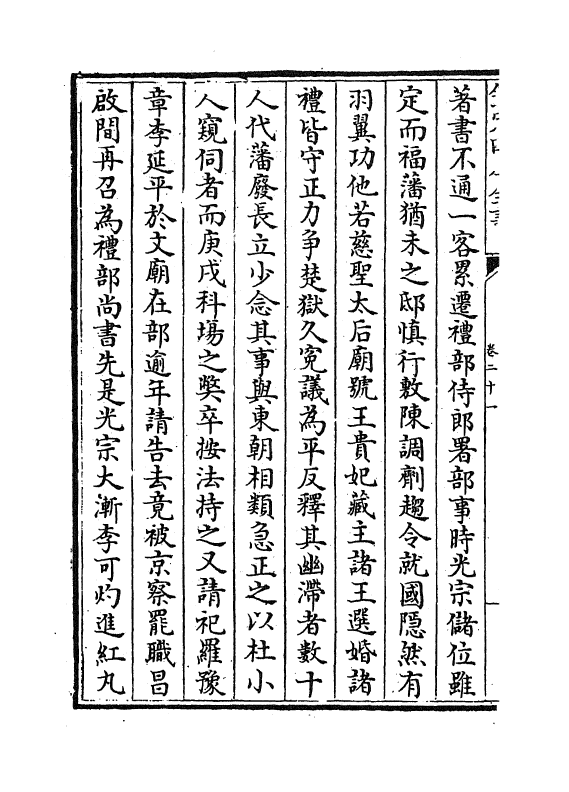 卷二十一
著書不通一客累遷禮部侍郎署部事時光宗儲位雖
定而福藩猶未之邸慎行敷陳調劑趣令就國隠然有
羽翼功他若慈聖太后廟號王貴妃藏主諸王選婚諸
禮皆守正力争楚獄久寃議為平反釋其幽滯者數十
人代藩廢長立少念其事與東朝相類急正之以杜小
人窺伺者而庚戌科場之獘卒按法持之又請祀羅豫
章李延平於文廟在部逾年請告去竟被京察罷職昌
啟間再召為禮部尚書先是光宗大漸李可灼進紅丸